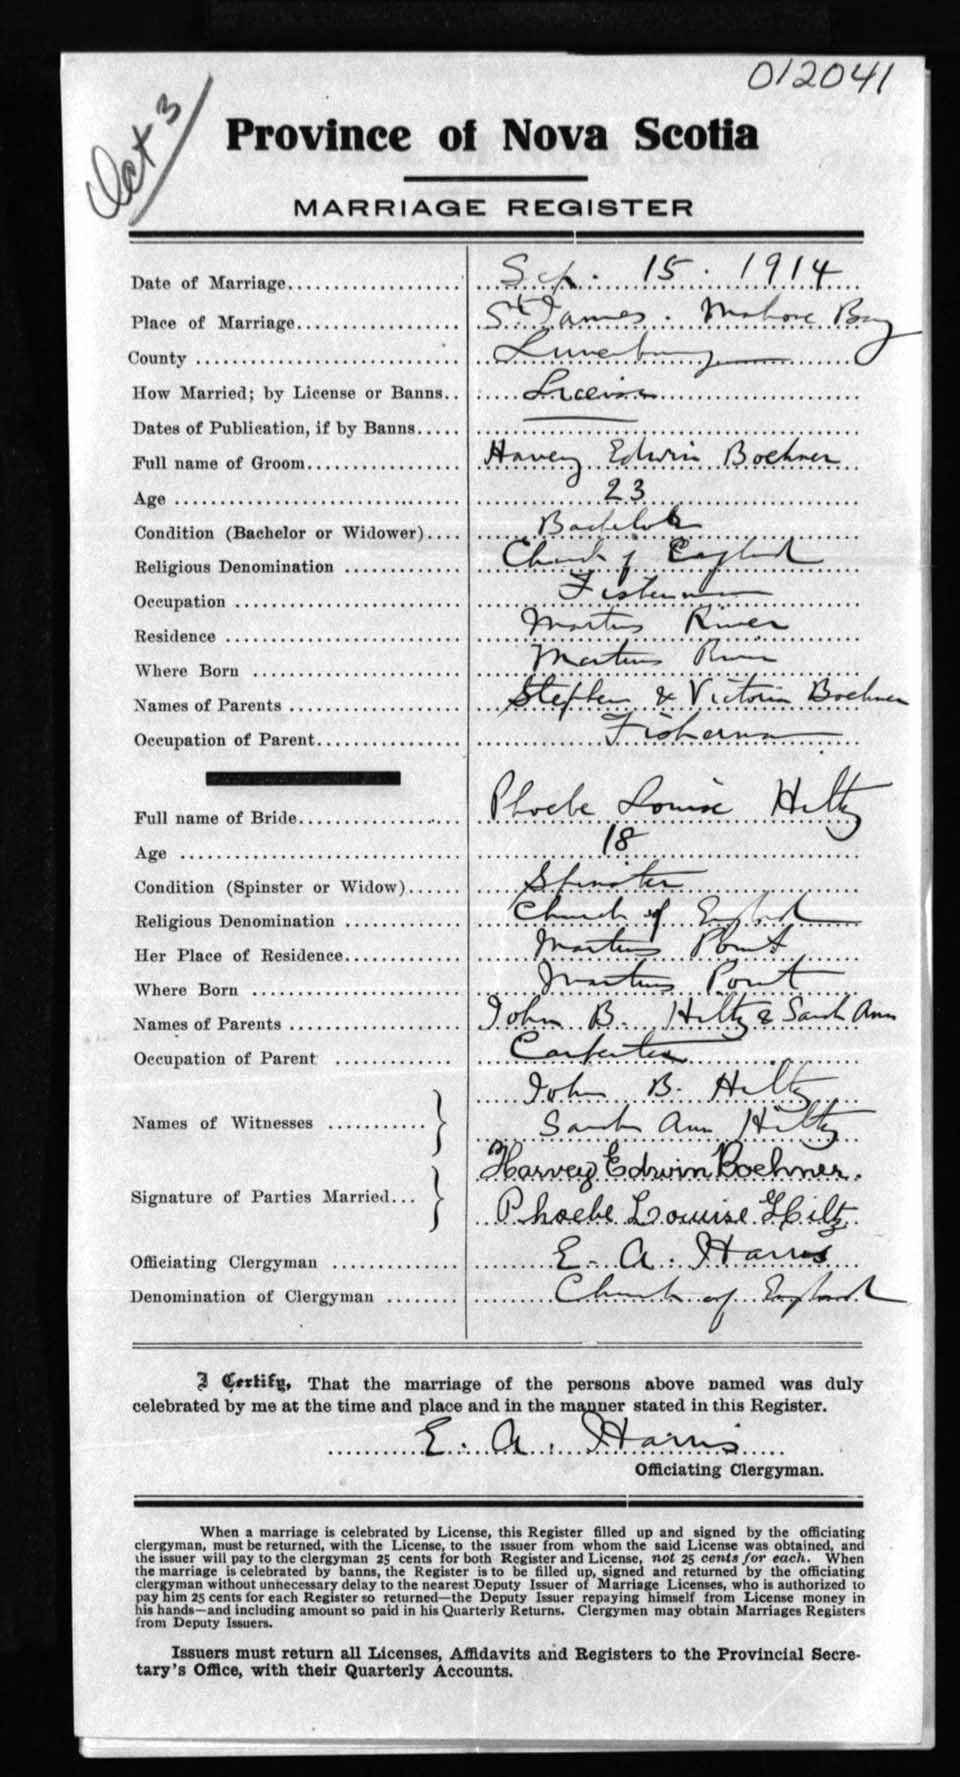 012041
Oct 3
Province of Nova Scotia
MARRIAGE REGISTER
Date of Marriage Sep. 15. 1914
Place of Marriage St James. Mahone Bay
County Lunenburg
How Married; by License or Banns License
Dates of Publication, if by Banns
Full name of Groom Harvey Edwin Boehner
Age 23
Condition (Bachelor or Widower) Bachelor
Religious Denomination Church of England
Occupation Fisherman
Residence Martins River
Where Born Martins River
Names of Parents Stephen & Victoria Boehner
Occupation of Parent Fisherman
Full name of Bride Phoebe Louise Hiltz
Age 18
Condition (Spinster or Widow) Spinster
Religious Denomination Church of England
Her Place of Residence Martins Point
Where Born Martins Point
Names of Parents John B. Hiltz & Sarah Ann
Occupation of Parent Carpenter
John B. Hiltz
Names of Witnesses
Sarah Ann Hiltz
Harvey Edwin Boehner.
Signature of Parties Married
Phoebe Louise Hiltz
Officiating Clergyman E. A. Harris
Denomination of Clergyman Church of England
I Certify, That the marriage of the persons above named was duly
celebrated by me at the time and place and in the manner stated in this Register.
E. A. Harris
Officiating Clergyman.
When a marriage is celebrated by License, this Register filled up and signed by the officiating
clergyman, must be returned, with the License, to the issuer from whom the said License was obtained, and
the issuer will pay to the clergyman 25 cents for both Register and License, not 25 cents for each. When
the marriage is celebrated by banns, the Register is to be filled up, signed and returned by the officiating
clergyman without unnecessary delay to the nearest Deputy Issuer of Marriage Licenses, who is authorized to
pay him 25 cents for each Register so returned—the Deputy Issuer repaying himself from License money in
his hands—and including amount so paid in his Quarterly Returns. Clergymen may obtain Marriages Registers
from Deputy Issuers.
Issuers must return all Licenses, Affidavits and Registers to the Provincial Secre-
tary's Office, with their Quarterly Accounts.